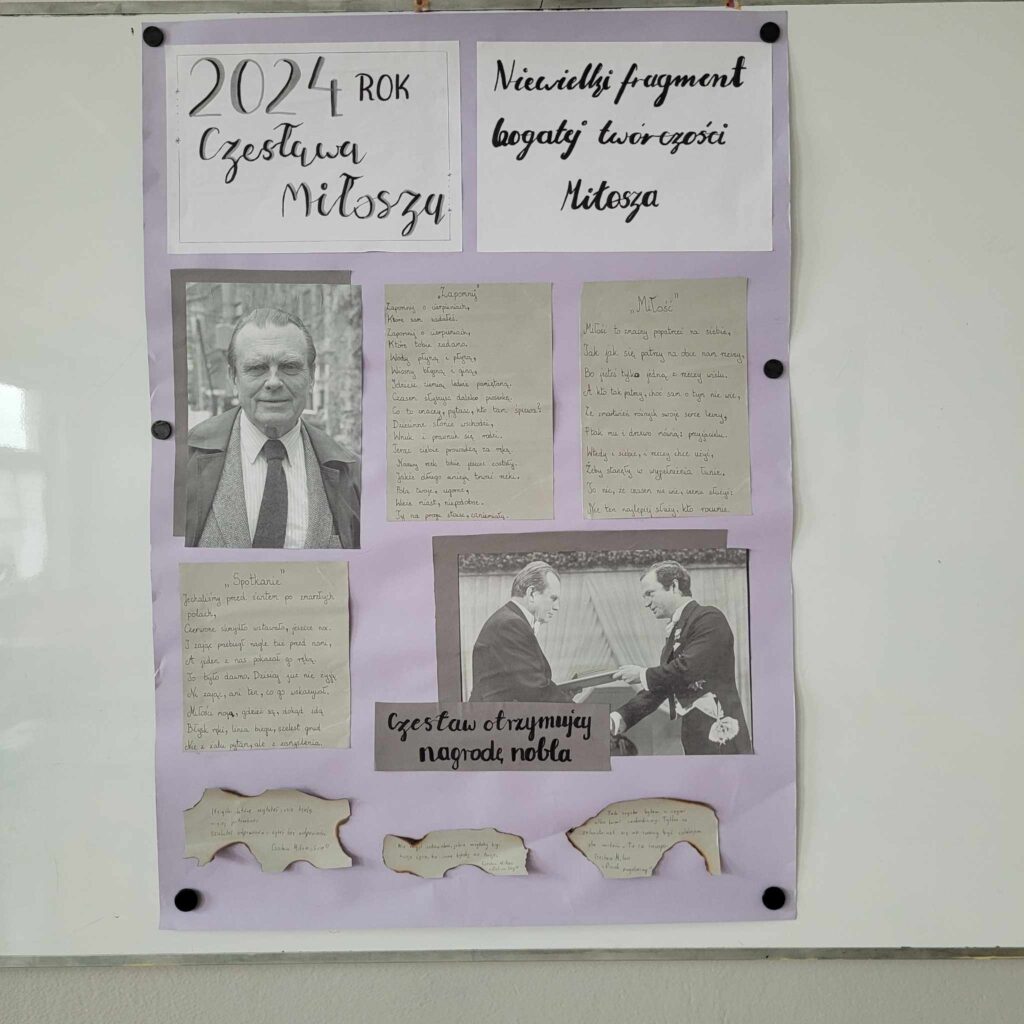 2024 ROK
Czesława
Miłosza
Niewielki fragment
bogatej twórczości
Miłosza
„Zapomnij"
Zapomnij o cierpieniach,
Które sam zadałeś.
Zapomnij o cierpieniach,
Które tobie zadano.
Wody płyną i płyną,
Wiosny błysną i giną,
Idziesz ziemią ledwie pamiętaną.
Czasem słyszysz daleką piosenkę.
Co to znaczy, pytasz, kto tam śpiewa?
Dziecinne słońce wschodzi,
Wnuk i prawnuk się rodzi.
Teraz ciebie prowadzą za rękę.
Nazwy rzek tobie jeszcze zostały.
Jakże długo umieją trwać rzeki.
Pola twoje, ugorne,
Wieże miast, niepodobne.
Ty na progu stoisz, oniemiały.
„Miłość"
Miłość to znaczy popatrzeć na siebie,
Tak jak się patrzy na obce nam rzeczy,
Bo jesteś tylko jedną z rzeczy wielu.
A kto tak patrzy, choć sam o tym nie wie,
Ze zmartwień różnych swoje serce leczy,
Ptak mu i drzewo mówią: przyjacielu.
Wtedy i siebie, i rzeczy chce użyć,
Żeby stanęły w wypełnienia łunie.
To nic, że czasem nie wie, czemu służyć:
Nie ten najlepiej służy, kto rozumie.
„Spotkanie"
Jechaliśmy przed świtem po zmarzłych
polach,
Czerwone skrzydło wstawało, jeszcze noc.
I zając przebiegł nagle tuż przed nami,
A jeden z nas pokazał go ręką.
To było dawno. Dzisiaj już nie żyją
Ni zając, ani ten, co go wskazywał.
Miłości moja, gdzież są, dokąd idą
Błysk ręki, linia biegu, szelest grud
Nie z żalu pytam, ale z zamyślenia.
Czesław otrzymujcy
nagrodę nobla
Czesław Miłosz
Czesław Miłosz
Czesław Miłosz